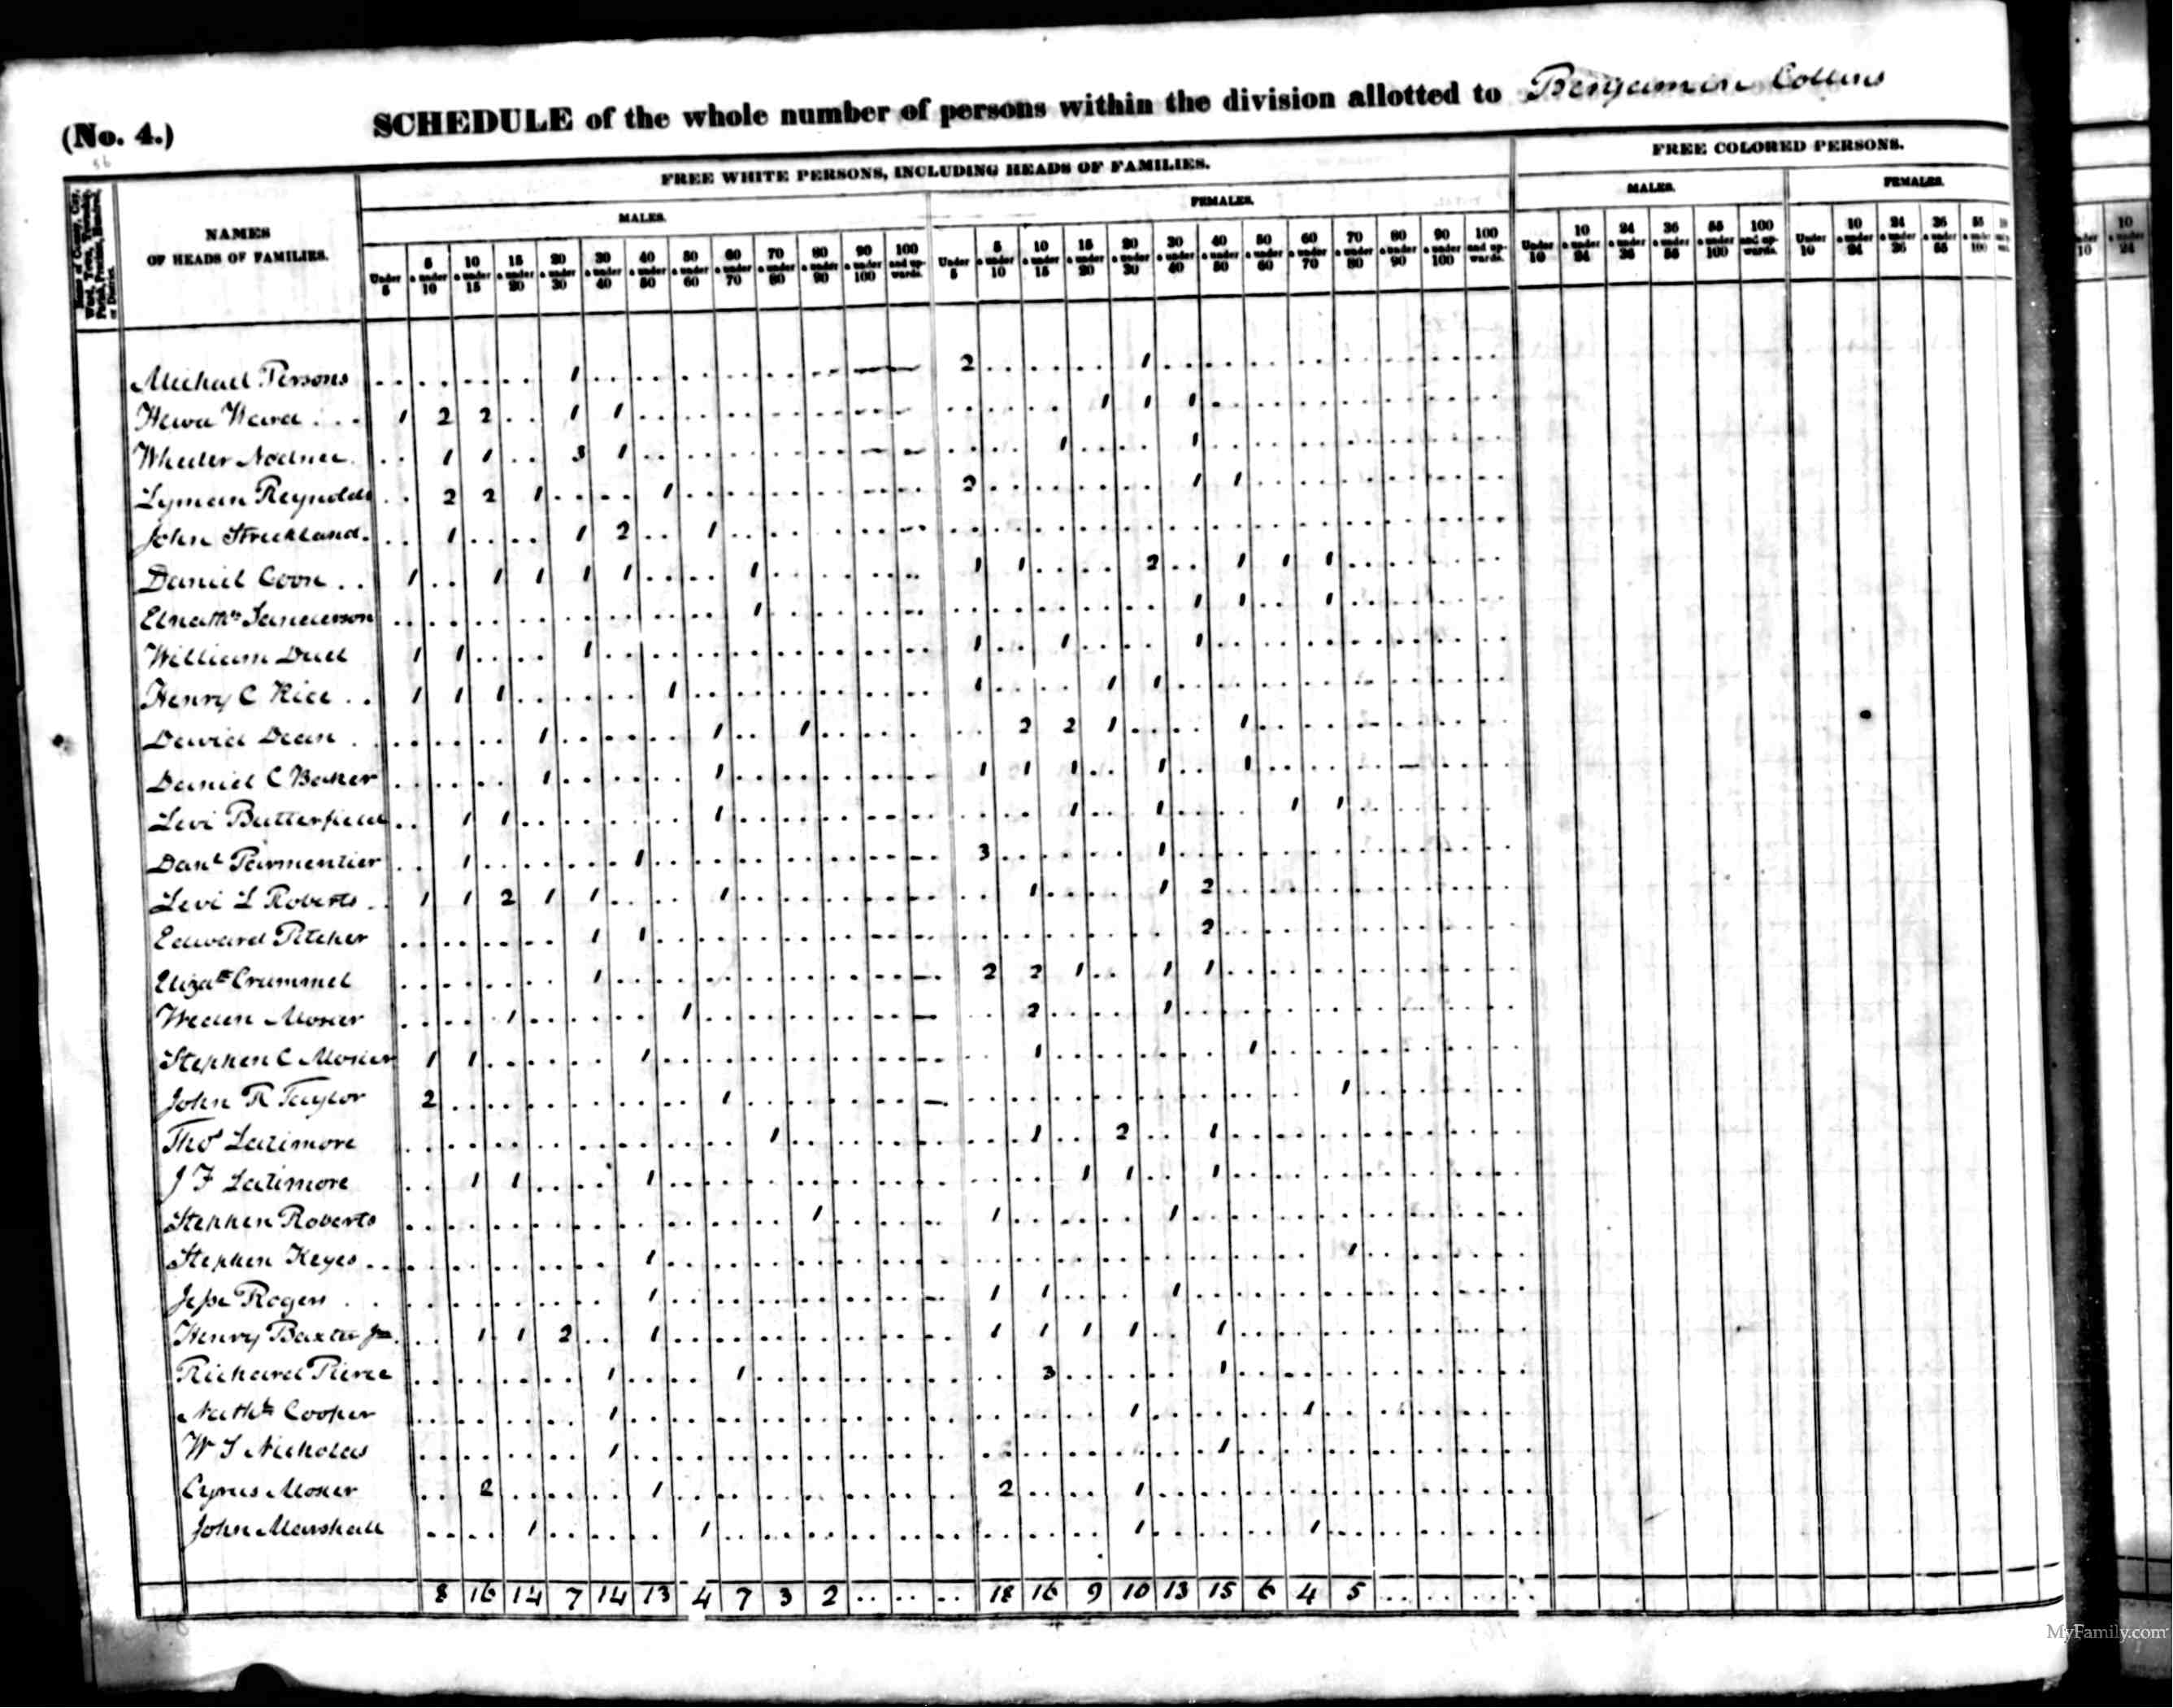 (No. 4.)
SCHEDULE of the whole number of persons within the division allotted to Benjamin Collins
FREE WHITE PERSONS, INCLUDING HEADS OF FAMILIES.
FREE COLORED PERSONS.
NAMES OF HEADS OF FAMILIES.
MALES.
FEMALES.
MALES.
FEMALES.
Under 5
5 & under 10
10 & under 15
15 & under 20
20 & under 30
30 & under 40
40 & under 50
50 & under 60
60 & under 70
70 & under 80
80 & under 90
90 & under 100
100 and upwards.
Under 5
5 & under 10
10 & under 15
15 & under 20
20 & under 30
30 & under 40
40 & under 50
50 & under 60
60 & under 70
70 & under 80
80 & under 90
90 & under 100
100 and upwards.
Under 10
10 & under 24
24 & under 36
36 & under 55
55 & under 100
100 and upwards.
Under 10
10 & under 24
24 & under 36
36 & under 55
55 100
Michael Persons 1 2 1
Ward 1 2 2 1 1 1 1 1
Wheeler 1 1 3 1 1 1
Lyman Reynolds 2 2 1 1 2 1 1
John Strickland 1 1 2 1
Daniel Coon 1 1 1 1 1 1 1 1 2 1 1 1
Elnathn Sanderson 1 1 1 1
William Duel 1 1 1 1 1 1
Henry C Rice 1 1 1 1 1 1 1
David Dean 1 1 1 2 2 1 1
Daniel C Baker 1 1 1 1 1 1 1
Levi Butterfield 1 1 1 1 1 1 1
Danl Parmentier 1 1 3 1
Levi L Roberts 1 1 2 1 1 1 1 1 2
Edward Pitcher 1 1 2
Elizath Crummel 1 2 2 1 1 1
Weden Mosier 1 1 2 1
Stephen C Mosier 1 1 1 1 1
John R Taylor 2 1 1
Thos Latimore 1 1 2 1
J F Latimore 1 1 1 1 1 1
Stephen Roberts 1 1 1
Stephen Keyes 1 1
Jesse Rogers 1 1 1 1
Henry Baxter Jr 1 1 2 1 1 1 1 1 1
Richard Pierce 1 1 3 1
Nathl Cooper 1 1 1
W S Nicholas 1 1
Cyrus Mosier 2 1 2 1
John Marshall 1 1 1 1
8 16 14 7 14 13 4 7 3 2 18 16 9 10 13 15 6 4 5
MyFamily.com